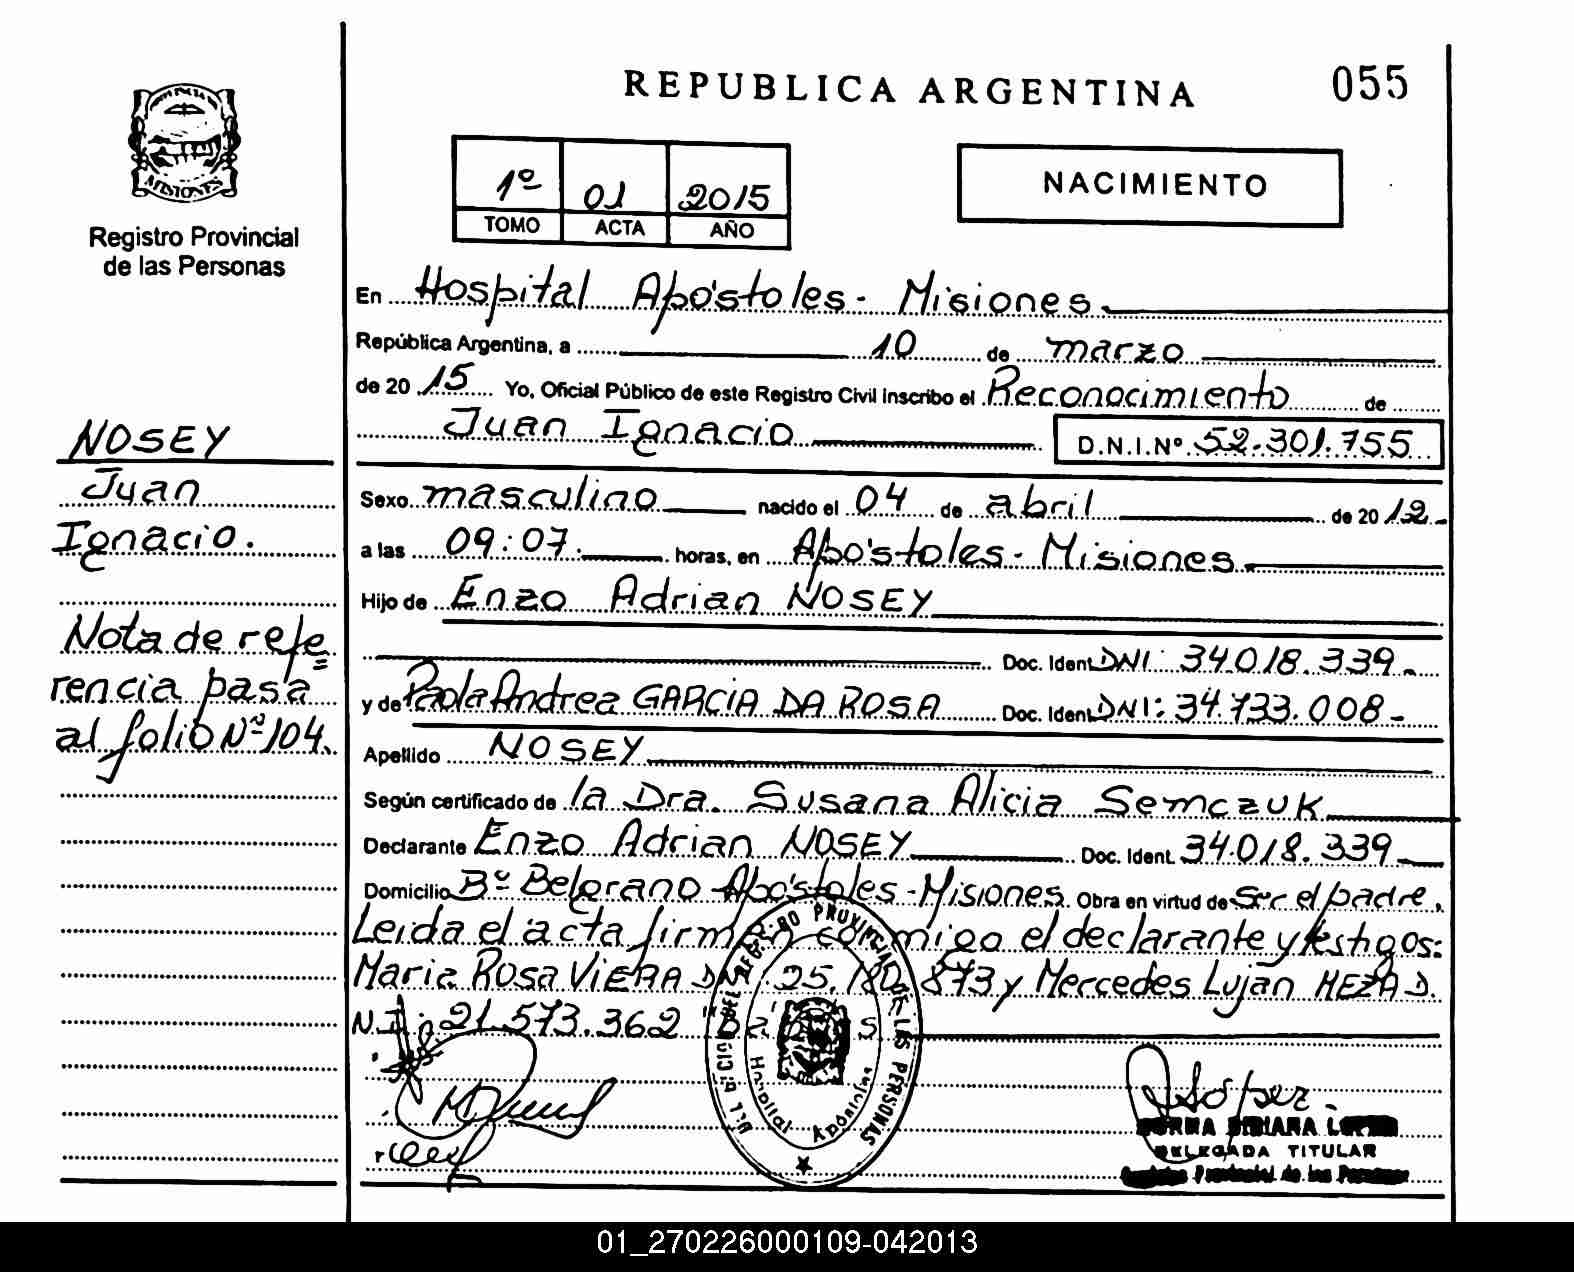 REPUBLICA ARGENTINA
055
MISIONES
Registro Provincial
de las Personas
1º 01 2015
TOMO ACTA AÑO
NACIMIENTO
En Hospital Apóstoles - Misiones
República Argentina, a 10 de marzo
de 20 15 Yo, Oficial Público de este Registro Civil inscribo el Reconocimiento de
Juan Ignacio D.N.I.Nº 52.301.755
Sexo masculino nacido el 04 de abril de 20 12-
a las 09:07. horas, en Apóstoles - Misiones
Hijo de Enzo Adrian NOSEY
Doc. Ident. DNI: 34.018.339-
y de Paola Andrea GARCIA DA ROSA Doc. Ident. DNI: 34.733.008-
Apellido NOSEY
Según certificado de la Dra. Susana Alicia Semczuk
Declarante Enzo Adrian NOSEY Doc. Ident. 34.018.339
Domicilio Bº Belgrano Apóstoles - Misiones. Obra en virtud de Ser el padre.
Leida el acta firman conmigo el declarante y testigos:
Maria Rosa VIERA D : 25.180.873 y Mercedes Luján MEZA D.
N.I: 21.573.362
NOSEY
Juan
Ignacio.
Nota de refe=
rencia pasa
al folio Nº 104.
REGISTRO PROVINCIAL DE LAS PERSONAS
Hospital Apóstoles
López
NORMA BIBIANA LOPEZ
DELEGADA TITULAR
Registro Provincial de las Personas
01_270226000109-042013